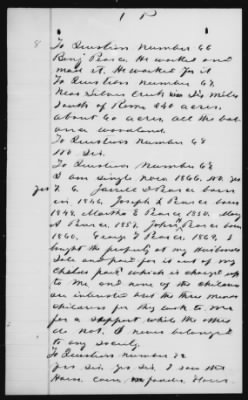 8 To Question Number 66
Benj Pearce He worked and
made it. He worked for it
To Question Number 67
Near Silver Creek Six miles
South of Rome 240 acres.
about 60 acres, all the bal-
ance woodland.
To Question Number 68
No Sir.
To Question Number 69
I am single now 1866. No. yes
yes F. G. D Pearce born
in 1846, Joseph L Pearce born
1848, Martha E Pearce 1850. Mary
A Pearce, 1857. John Pearce born
1860. George T Pearce, 1864, I
bought the property at my husbands
Sale and paid for it out of my
which is charged up
to me, and none of the children
are interested but the three
children for they look to me
for a support while the other
do not. I never belonged
to any society.
To Question Number 72
yes Sir, yes Sir, I saw the
Horse. Corn, fodder, Flour.